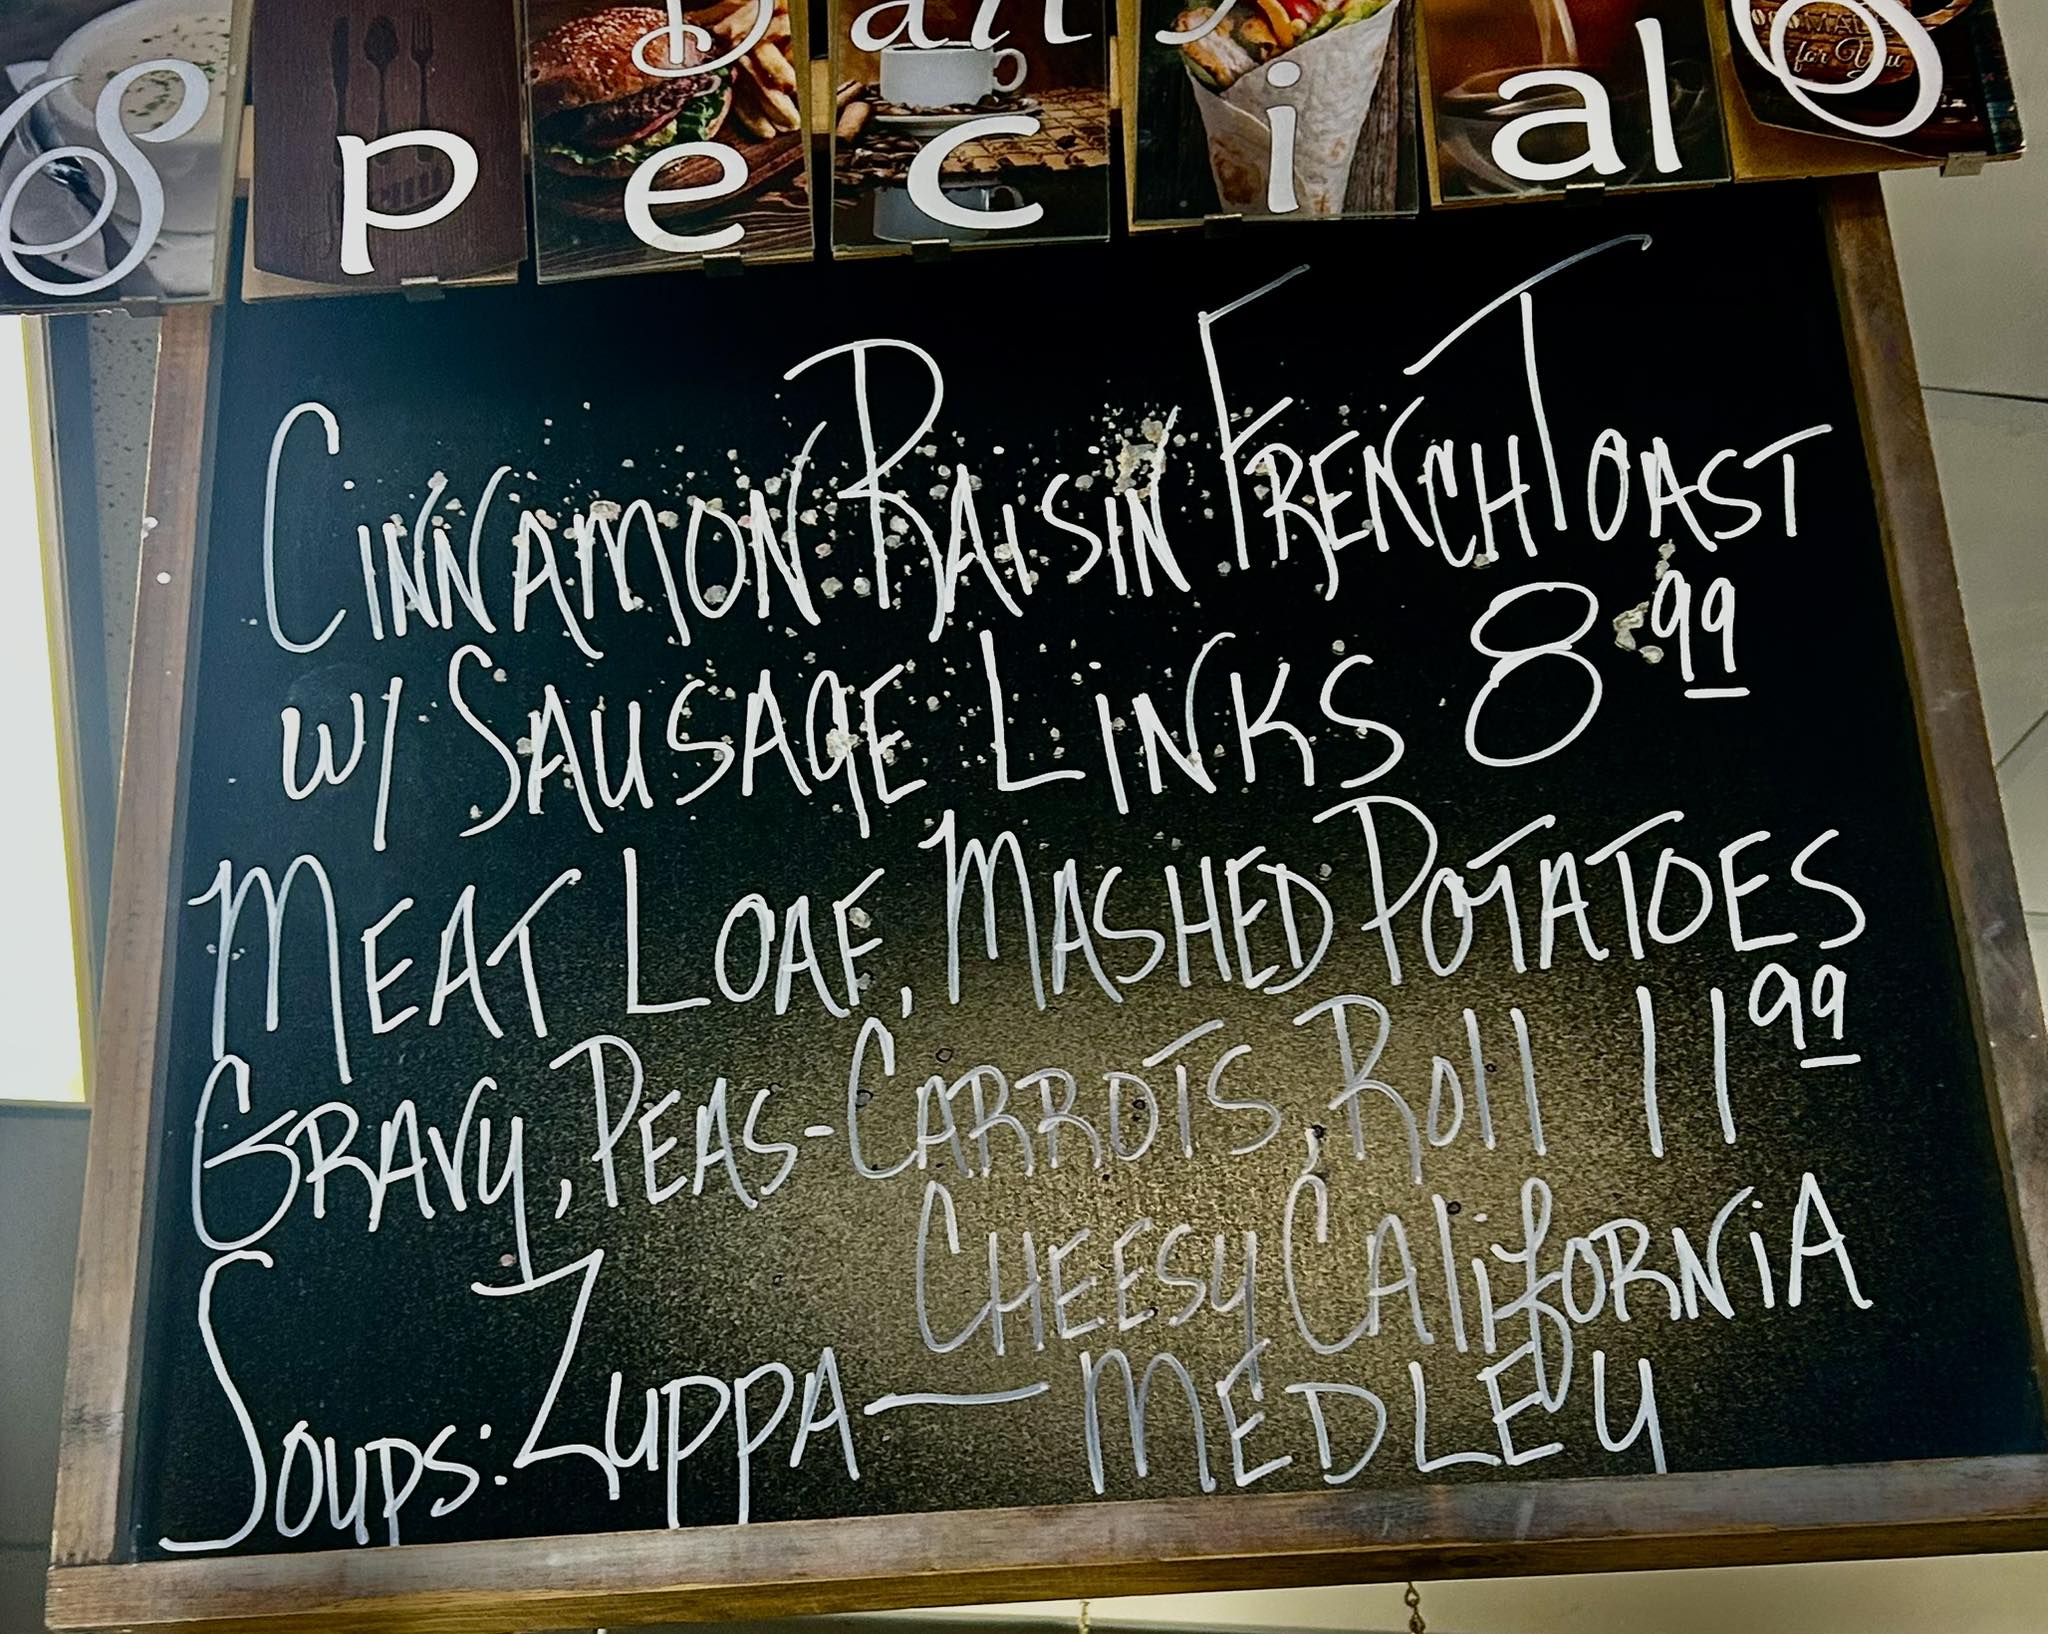 Daily
Specials
CINNAMON RAISIN FRENCH TOAST
W/ SAUSAGE LINKS 8.99
MEAT LOAF, MASHED POTATOES
GRAVY, PEAS-CARROTS, Roll 11 99
CHEESY CALIFORNIA
SOUPS: ZUPPA — MEDLEY
for You